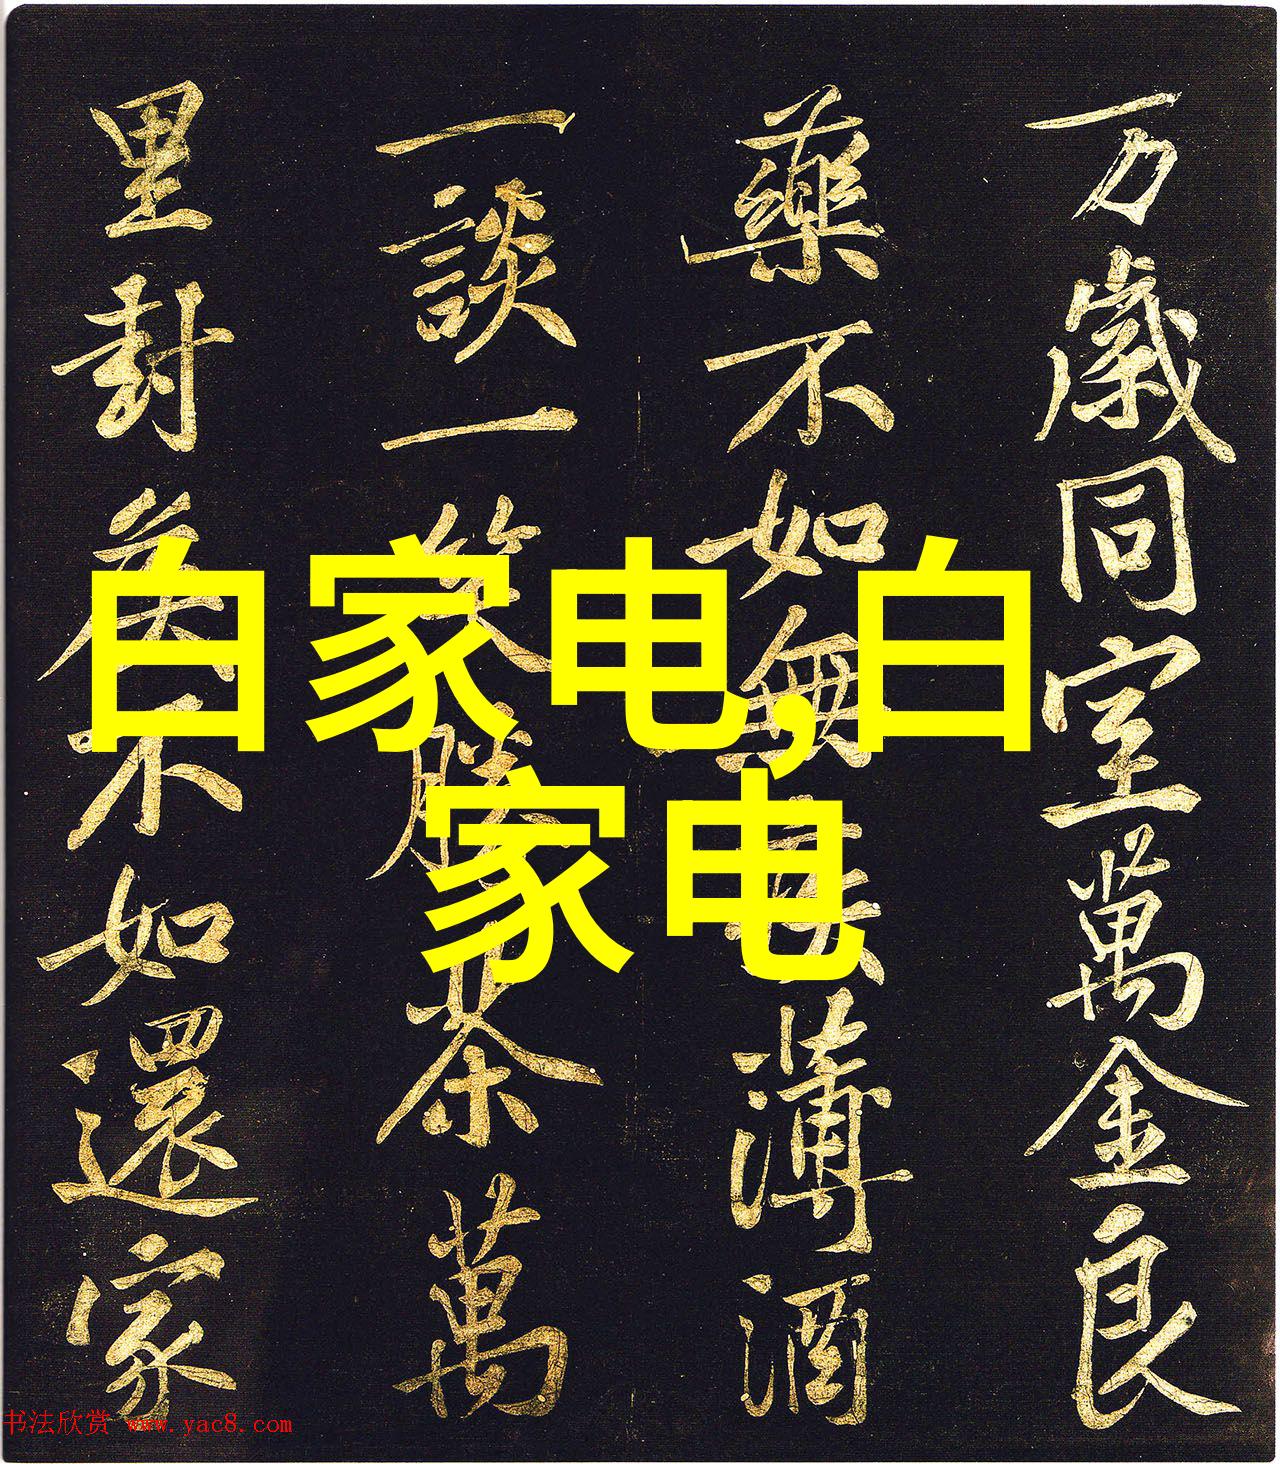 万歲同室萬金良
藥不如無疾薄酒
一談一笑勝茶萬
里封侯不如還家
白家电,白
家电
书法欣赏 www.yac8.com